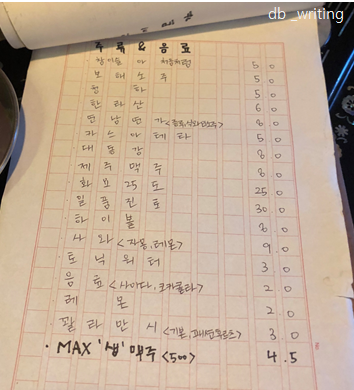 db _writing
주류 & 음료
참이슬 / 처음처럼 5.0
보해소주 5.0
5.0
한라산 6.0
8.0
카스 / 테라 5.0
대동강 8.0
제주맥주 8.0
화요25도 25.0
일품진로 30.0
하이볼 8.0
사와 <자몽,레몬> 9.0
토닉워터 3.0
음료 <사이다, 코카콜라> 2.0
레몬 2.0
필라만시 <기본, 패션후르츠> 3.0
· MAX '생' 맥주 <500> 4.5